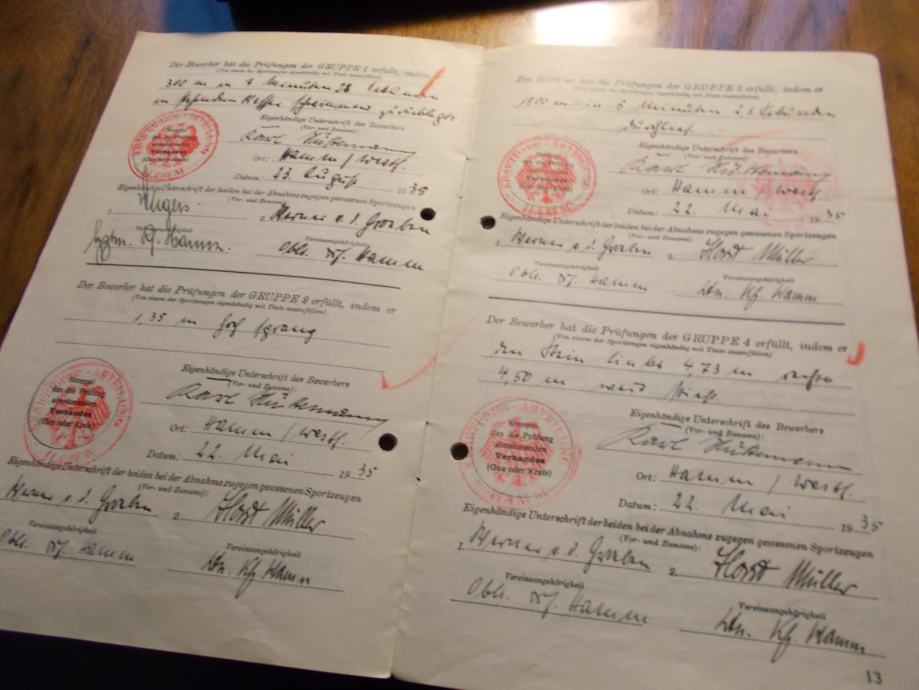 Der Bewerber hat die Prüfungen der GRUPPE 1 erfüllt, indem er
(Von einem der Sportzeugen eigenhändig mit Tinte auszufüllen)
300 m in 7 Minuten 28 Sekunden
Eigenhändige Unterschrift des Bewerbers
(Vor- und Zuname):
Karl
Ort: Hamm / Westf.
Datum: 23. August 1935
Eigenhändige Unterschrift der beiden bei der Abnahme zugegen gewesenen Sportzeugen
(Vor- und Zuname):
2. Werner v. d.
Vereinszugehörigkeit
Hamm
Der Bewerber hat die Prüfungen der GRUPPE 2 erfüllt, indem er
(Von einem der Sportzeugen eigenhändig mit Tinte auszufüllen)
1,35 m hoch sprang
Stempel
des die Prüfung
abnehmenden
Verbandes
(Gau oder Kreis)
Eigenhändige Unterschrift des Bewerbers
(Vor- und Zuname):
Karl
Ort: Hamm / Westf.
Datum: 22. Mai 1935
Eigenhändige Unterschrift der beiden bei der Abnahme zugegen gewesenen Sportzeugen
(Vor- und Zuname):
Werner v. d. 2. Horst Müller
Vereinszugehörigkeit Vereinszugehörigkeit
Hamm Hamm
Der Bewerber hat die Prüfungen der GRUPPE 3 erfüllt, indem er
(Von einem der Sportzeugen eigenhändig mit Tinte auszufüllen)
1500 m in 5 Minuten 23 Sekunden
durchlief.
Eigenhändige Unterschrift des Bewerbers
(Vor- und Zuname):
Karl
Ort: Hamm / Westf.
Datum: 22. Mai 1935
Eigenhändige Unterschrift der beiden bei der Abnahme zugegen gewesenen Sportzeugen
(Vor- und Zuname):
1. Werner v. d. 2. Horst Müller
Vereinszugehörigkeit Vereinszugehörigkeit
Hamm Hamm
Der Bewerber hat die Prüfungen der GRUPPE 4 erfüllt, indem er
(Von einem der Sportzeugen eigenhändig mit Tinte auszufüllen)
den Stein links 4,73 m rechts
4,50 m weit stieß.
Stempel
des die Prüfung
abnehmenden
Verbandes
(Gau oder Kreis)
Eigenhändige Unterschrift des Bewerbers
(Vor- und Zuname):
Karl
Ort: Hamm / Westf.
Datum: 22. Mai 1935
Eigenhändige Unterschrift der beiden bei der Abnahme zugegen gewesenen Sportzeugen
(Vor- und Zuname):
1. Werner v. d. 2. Horst Müller
Vereinszugehörigkeit Vereinszugehörigkeit
Hamm Hamm
13